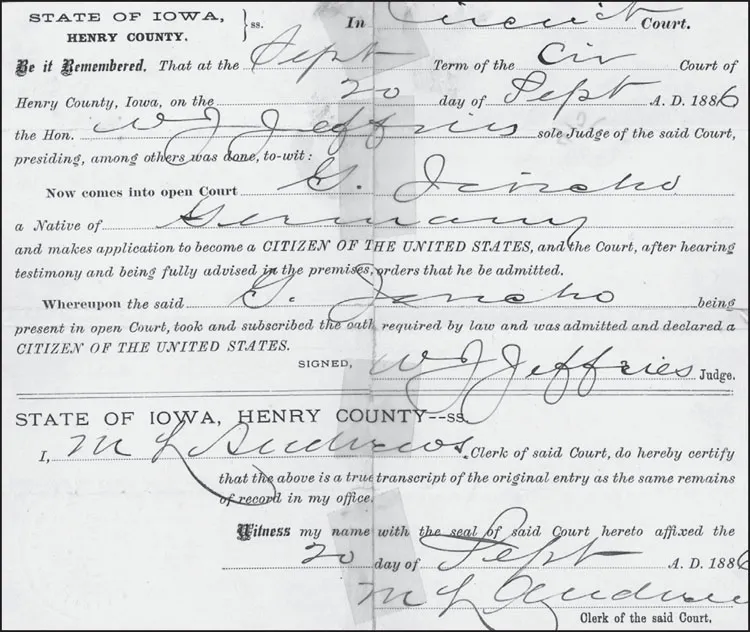 STATE OF IOWA, HENRY COUNTY. } ss. In Circuit Court.
Be it Remembered, That at the Sept Term of the Cir Court of
Henry County, Iowa, on the 20 day of Sept A. D. 1886
the Hon. W J Jeffries sole Judge of the said Court,
presiding, among others was done, to-wit:
Now comes into open Court G. Jericho
a Native of Germany
and makes application to become a CITIZEN OF THE UNITED STATES, and the Court, after hearing
testimony and being fully advised in the premises, orders that he be admitted.
Whereupon the said G. Jericho being
present in open Court, took and subscribed the oath required by law and was admitted and declared a
CITIZEN OF THE UNITED STATES.
SIGNED, W J Jeffries Judge.
STATE OF IOWA, HENRY COUNTY--ss.
I, M L Andrews. Clerk of said Court, do hereby certify
that the above is a true transcript of the original entry as the same remains
of record in my office.
Witness my name with the seal of said Court hereto affixed the
20 day of Sept A. D. 1886
M L Andrews
Clerk of the said Court.